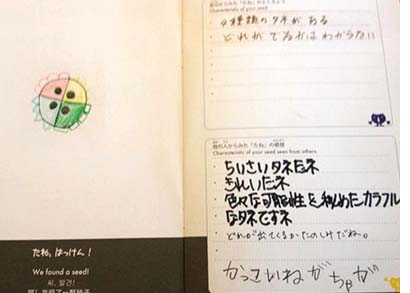 たね、はっけん！
We found a seed!
씨, 발견!
自分からみた「たね」のとくちょう
Characteristic of your seed
・4種類のタネがある
・どれがでるかはわからない
他の人からみた「たね」の感想
Characteristic of your seed seen from others.
・ちいさいタネだネ
・きれいだネ
・色々な可能性を秘めたカラフル
なタネですネ
・どれが出てくるかたのしみだね。